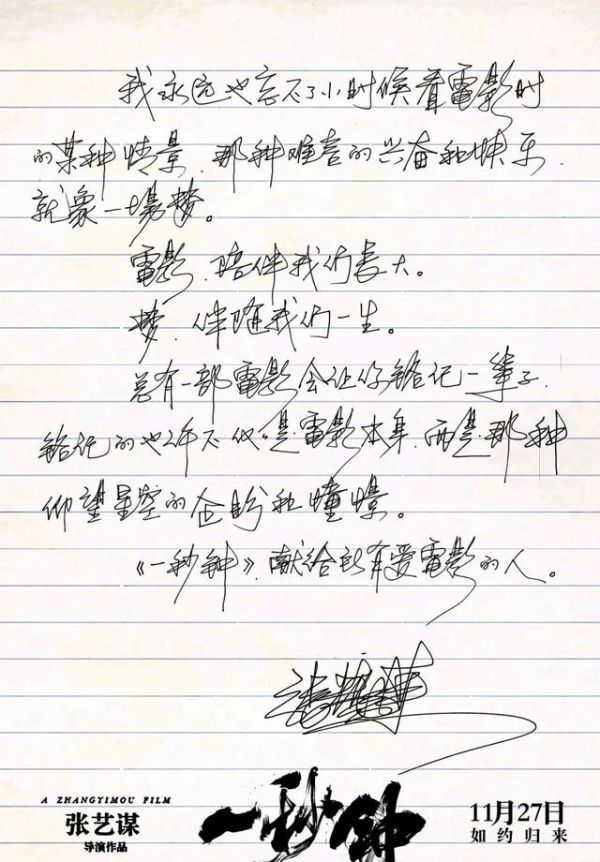 我永远也忘不了小时候看電影时
的某种情景，那种难言的兴奋和快乐，
就象一場梦。
電影，陪伴我们长大。
梦，伴随我们一生。
总有一部電影会让你铭记一辈子，
铭记的也许不仅是電影本身，而是那种
仰望星空的企盼和憧憬。
《一秒钟》，献给所有爱電影的人。
张艺谋
A ZHANGYIMOU FILM
张艺谋
导演作品
一秒钟
11月27日
如约归来